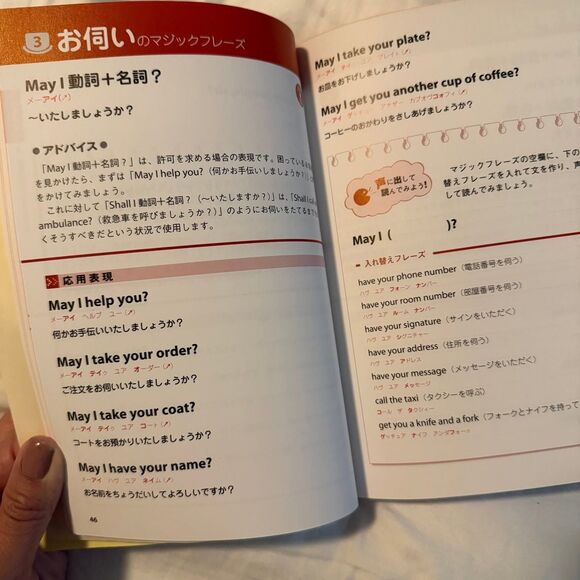 3 お伺いのマジックフレーズ
May I 動詞＋名詞？
メーアイ(↗)
～いたしましょうか？
●アドバイス●
「May I 動詞＋名詞？」は、許可を求める場合の表現です。困っている
を見かけたら、まずは「May I help you?（何かお手伝いしましょうか？）」
をかけてみましょう。
これに対して「Shall I 動詞＋名詞？（～いたしますか？）」は、「Shall I
ambulance?（救急車を呼びましょうか？）」のようにお伺いをたてる
くそうすべきだという状況で使用します。
応用表現
May I help you?
メーアイ ヘルプ ユー(↗)
何かお手伝いいたしましょうか？
May I take your order?
メーアイ テイク ユア オーダー(↗)
ご注文をお伺いいたしましょうか？
May I take your coat?
メーアイ テイク ユア コート(↗)
コートをお預かりいたしましょうか？
May I have your name?
メーアイ ハヴ ユア ネイム(↗)
お名前をちょうだいしてよろしいですか？
46
May I take your plate?
メーアイ テイク ユア プレイト(↗)
お皿をお下げしましょうか？
May I get you another cup of coffee?
コーヒーのおかわりをさしあげましょうか？
声に出して
読んでみよう!
マジックフレーズの空欄に、下の
替えフレーズを入れて文を作り、声
して読んでみましょう。
May I ( )?
入れ替えフレーズ
have your phone number（電話番号を伺う）
ハヴ ユア フォーン ナンバー
have your room number（部屋番号を伺う）
ハヴ ユア ルーム ナンバー
have your signature（サインをいただく）
ハヴ ユア シグニチャー
have your address（住所を伺う）
ハヴ ユア アドレス
have your message（メッセージをいただく）
ハヴ ユア メッセージ
call the taxi（タクシーを呼ぶ）
コール ザ タクシィー
get you a knife and a fork（フォークとナイフを持って
ゲッチュア ナイフ アンダフォーク